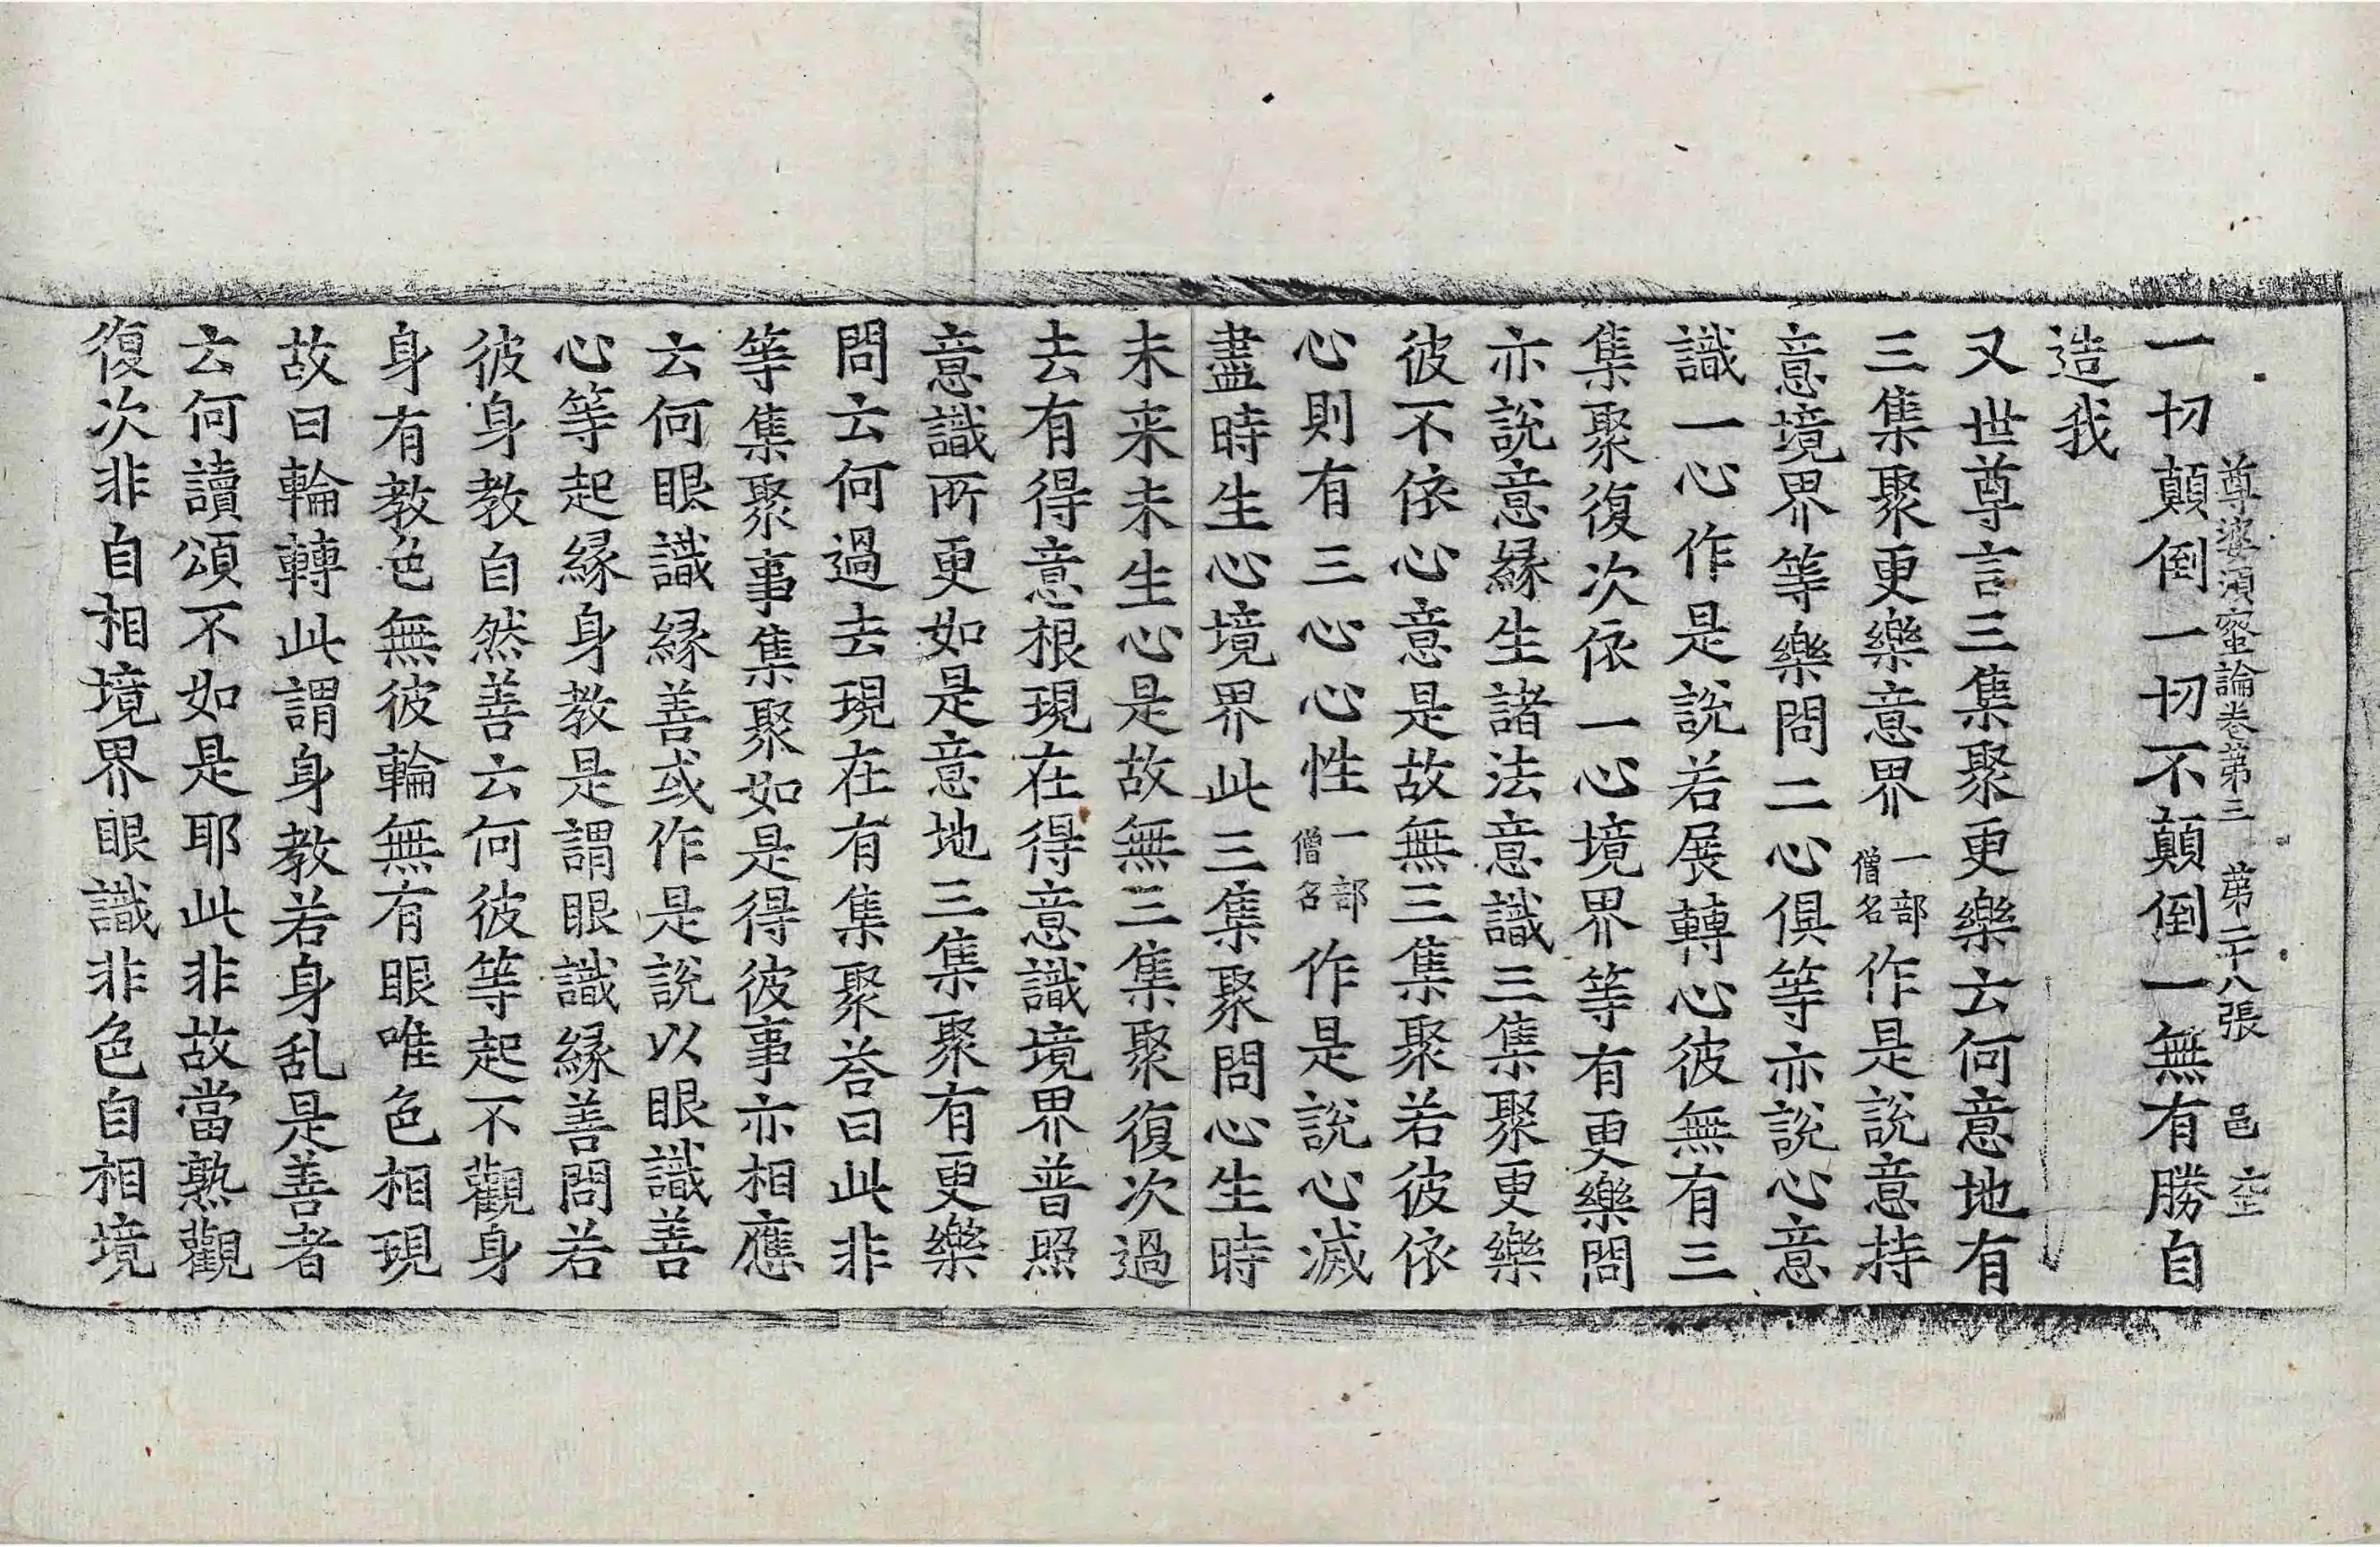 尊婆須蜜論卷第三 第二十八張 邑 㘴
一切顛倒一切不顛倒一無有勝自
造我
又世尊言三集聚更樂云何意地有
三集聚更樂意界一部僧名作是說意持
意境界等樂問二心俱等亦說心意
識一心作是說若展轉心彼無有三
集聚復次依一心境界等有更樂問
亦說意緣生諸法意識三集聚更樂
彼不依心意是故無三集聚若彼依
心則有三心心性一部僧名作是說心滅
盡時生心境界此三集聚問心生時
未来未生心是故無三集聚復次過
去有得意根現在得意識境界普照
意識所更如是意地三集聚有更樂
問云何過去現在有集聚荅曰此非
等集聚事集聚如是得彼事亦相應
云何眼識緣善或作是說以眼識善
心等起緣身教是謂眼識緣善問若
彼身教自然善云何彼等起不觀身
身有教色無彼輪無有眼唯色相現
故曰輪轉此謂身教若身乱是善者
云何讀頌不如是耶此非故當熟觀
復次非自相境界眼識非色自相境